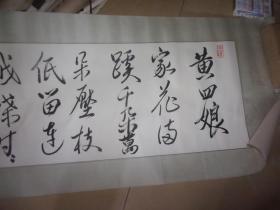 黄四娘
家花满
蹊千朵萬
朵壓枝
低留连
戏蝶时〻